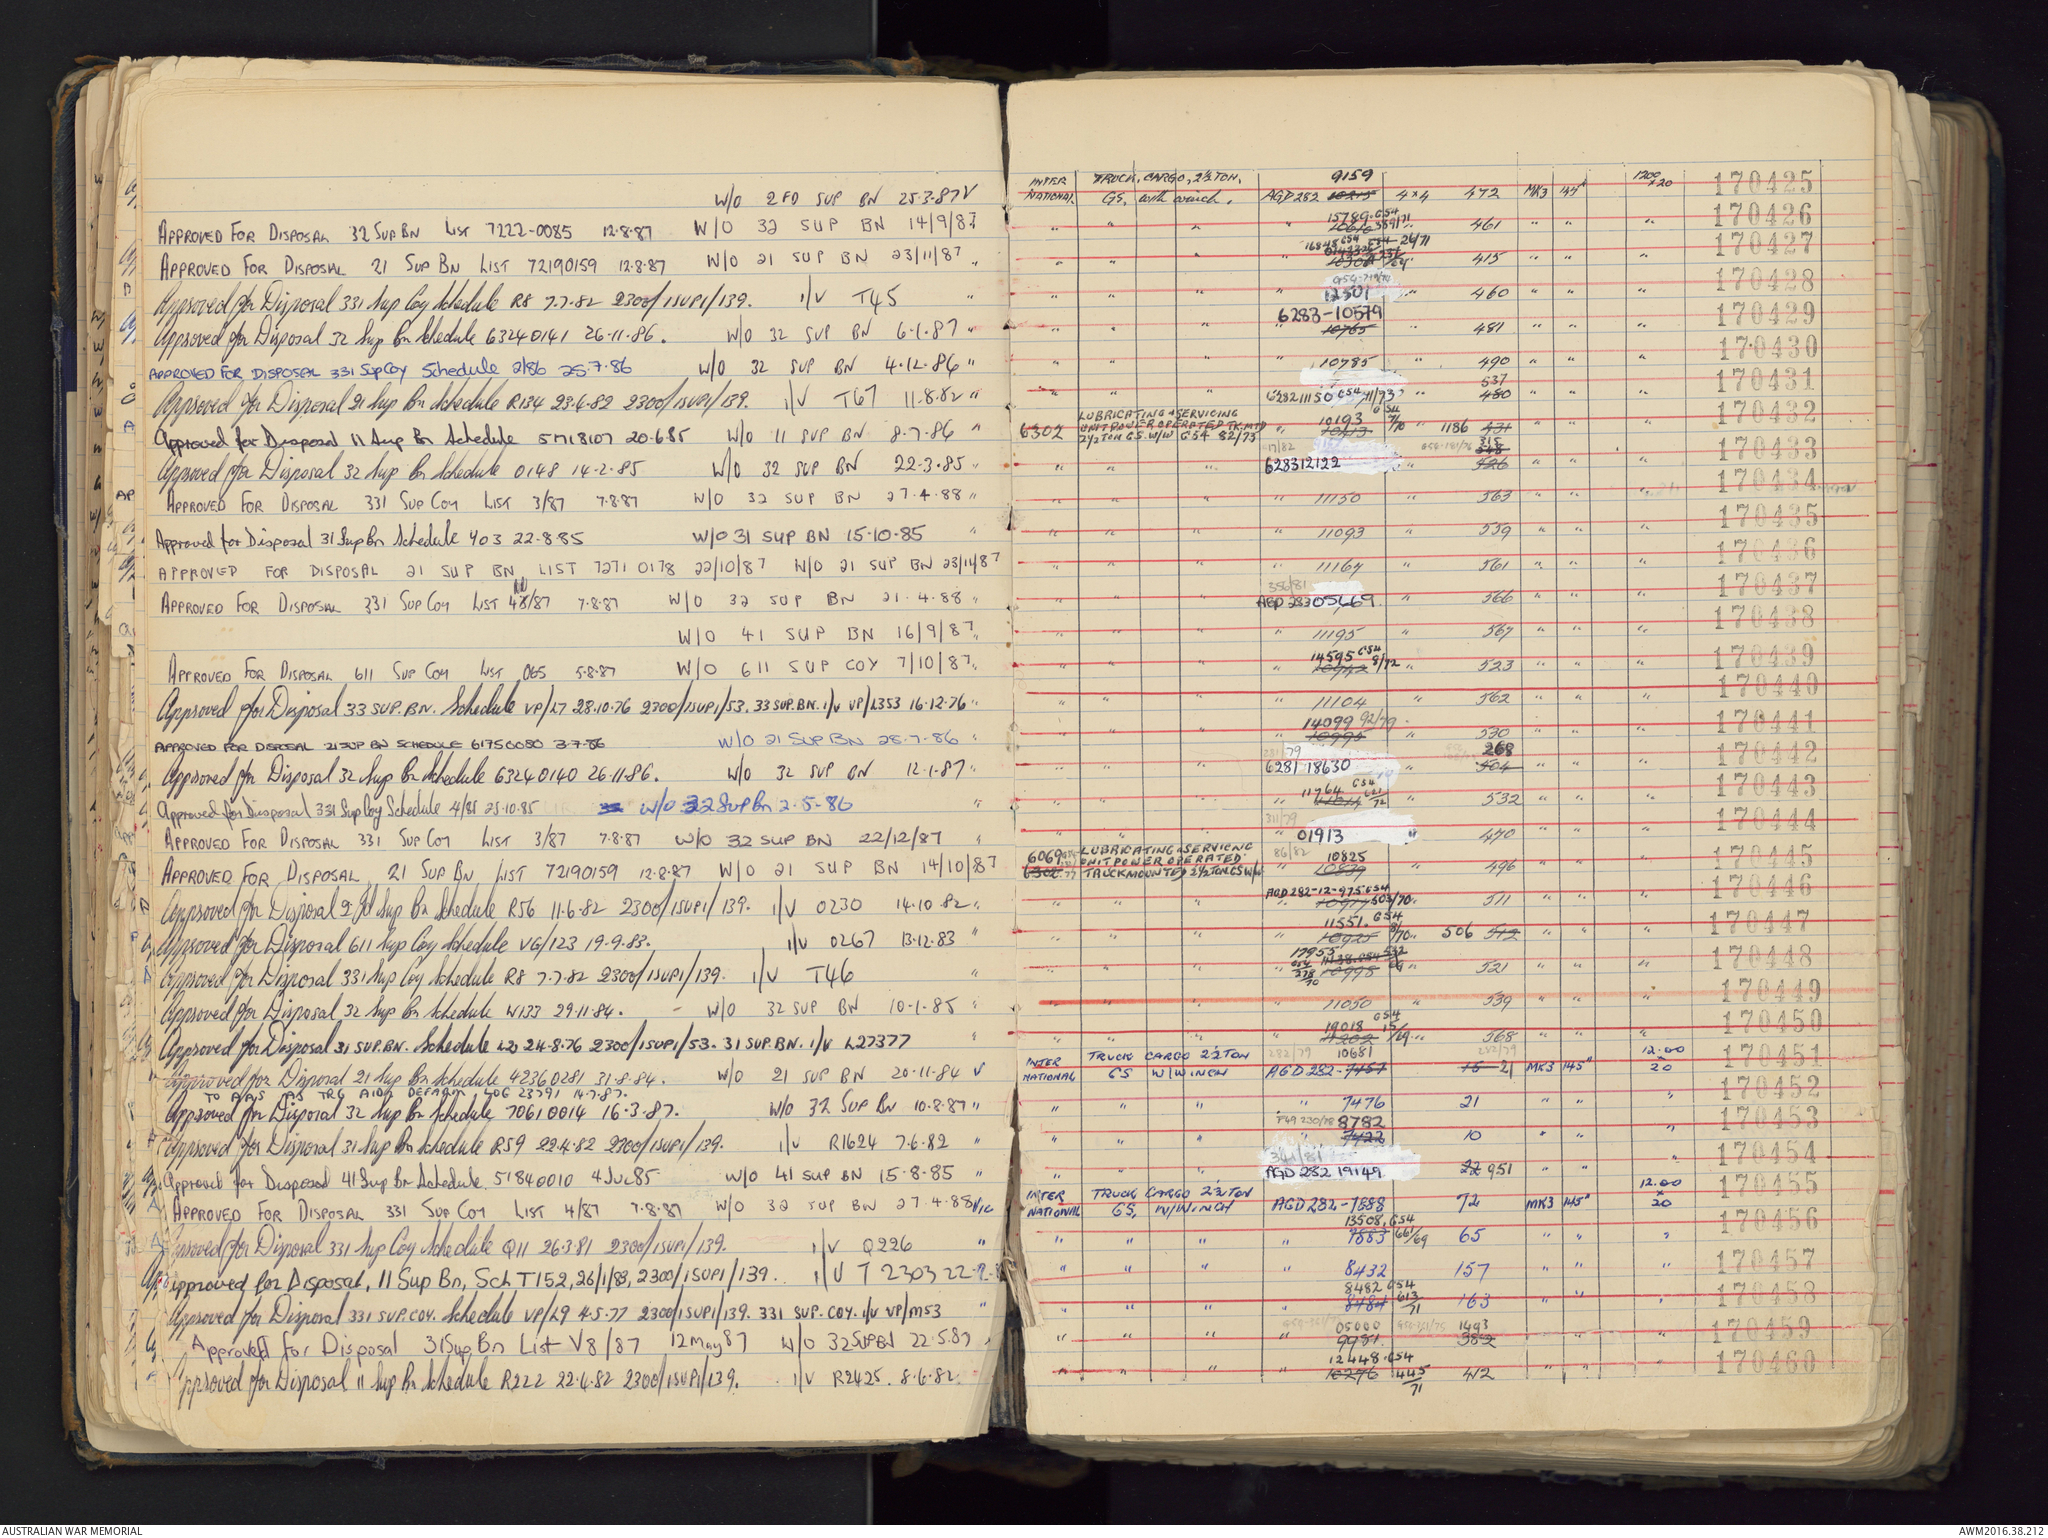 W/O 2 FD SUP BN 25.3.87 V
APPROVED FOR DISPOSAL 32 SUP BN LIST 7222-0085 12.8.87 W/O 32 SUP BN 14/9/87 "
APPROVED FOR DISPOSAL 21 SUP BN LIST 72190159 12.8.87 W/O 21 SUP BN 23/11/87 "
Approved for Disposal 331 Sup Coy Schedule R8 7.7.82 2300/1SUP1/139. I/V T45 "
Approved for Disposal 32 Sup Bn Schedule 63240141 26.11.86. W/O 32 SUP BN 6.1.87 "
APPROVED FOR DISPOSAL 331 Sup Coy Schedule 2/86 25.7.86 W/O 32 SUP BN 4.12.86 "
Approved for Disposal 21 Sup Bn Schedule R134 23.6.82 2300/1SUP1/139. I/V T67 11.8.82 "
Approved for Disposal 11 Sup Bn Schedule 5718107 20.6.85 W/O 11 SUP BN 8.7.86 "
Approved for Disposal 32 Sup Bn Schedule 0148 14.2.85 W/O 32 SUP BN 22.3.85 "
APPROVED FOR DISPOSAL 331 SUP COY LIST 3/87 7.8.87 W/O 32 SUP BN 27.4.88 "
Approved for Disposal 31 Sup Bn Schedule 403 22.8.85 W/O 31 SUP BN 15.10.85 "
APPROVED FOR DISPOSAL 21 SUP BN LIST 7271 0178 22/10/87 W/O 21 SUP BN 23/11/87
APPROVED FOR DISPOSAL 331 SUP COY LIST /87 7.8.87 W/O 32 SUP BN 21.4.88 "
W/O 41 SUP BN 16/9/87 "
APPROVED FOR DISPOSAL 611 SUP COY LIST 065 5.8.87 W/O 611 SUP COY 7/10/87 "
Approved for Disposal 33 SUP.BN. Schedule VP/L7 28.10.76 2300/1SUP1/53. 33 SUP.BN. I/V VP/L353 16.12.76 "
APPROVED FOR DISPOSAL 21 SUP BN SCHEDULE 61750080 3.7.86 W/O 21 SUP BN 28.7.86 "
Approved for Disposal 32 Sup Bn Schedule 63240140 26.11.86. W/O 32 SUP BN 12.1.87 "
Approved for Disposal 331 Sup Coy Schedule 4/85 25.10.85 W/O 32 Sup Bn 2.5.86 "
APPROVED FOR DISPOSAL 331 SUP COY LIST 3/87 7.8.87 W/O 32 SUP BN 22/12/87 "
APPROVED FOR DISPOSAL 21 SUP BN LIST 72190159 12.8.87 W/O 21 SUP BN 14/10/87
Approved for Disposal 2 Fd Sup Bn Schedule R56 11.6.82 2300/1SUP1/139. I/V 0230 14.10.82 "
Approved for Disposal 611 Sup Coy Schedule VG/123 19.9.83. I/V 0267 13.12.83 "
Approved for Disposal 331 Sup Coy Schedule R8 7.7.82 2300/1SUP1/139. I/V T46 "
Approved for Disposal 32 Sup Bn Schedule W133 29.11.84. W/O 32 SUP BN 10.1.85 "
Approved for Disposal 31 SUP.BN. Schedule L20 24.8.76 2300/1SUP1/53. 31 SUP.BN. I/V L27377
Approved for Disposal 21 Sup Bn Schedule 42360281 31.8.84. W/O 21 SUP BN 20.11.84 V
TO AAS AS TRG AID 14.7.87.
Approved for Disposal 32 Sup Bn Schedule 70610014 16.3.87. W/O 32 SUP BN 10.8.87 "
Approved for Disposal 31 Sup Bn Schedule R59 22.4.82 2300/1SUP1/139. I/V R1624 7.6.82 "
Approved for Disposal 41 Sup Bn Schedule 51840010 4 Jul 85 W/O 41 SUP BN 15.8.85 "
APPROVED FOR DISPOSAL 331 SUP COY LIST 4/87 7.8.87 W/O 32 SUP BN 27.4.88 VIC
Approved for Disposal 331 Sup Coy Schedule Q11 26.3.81 2300/1SUP1/139. I/V Q226 "
Approved for Disposal, 11 Sup Bn, Sch T152, 26/1/83, 2300/1SUP1/139. I/V T2303
Approved for Disposal 331 SUP.COY. Schedule VP/L9 4.5.77 2300/1SUP1/139. 331 SUP.COY. I/V VP/M53 "
Approved for Disposal 31 Sup Bn List V8/87 12 May 87 W/O 32 SUP BN 22.5.87 "
Approved for Disposal 11 Sup Bn Schedule R222 22.4.82 2300/1SUP1/139. I/V R2425. 8.6.82.
INTER TRUCK, CARGO, 2½ TON, 9159 1200 x 20
NATIONAL GS, with winch. AGD 282 10215 4x4 472 MK3 145" 170425
" " " " 15789 G54 " 461 " " " 170426
" " " " 16848 G54 26/71 " 415 " " " 170427
" " " " 12501 " 460 " " " 170428
6283-10579
" " " " 10765 " 481 " " " 170429
" " " " 10785 " 490 " " " 170430
537
" " " 628211150 G54 11/73 480 " " " 170431
LUBRICATING & SERVICING
6302 UNIT POWER OPERATED TK MTD 10193 G54 7/70 1186 431 " " " 170432
2½ TON GS W/W G54 82/73
17/82 315
" " " 628312122 " 526 " " " 170433
" " " " 11150 " 563 " " " 170434
" " " " 11093 " 559 " " " 170435
" " " " 11164 " 561 " " " 170436
356/81
" " " AGD 28305669 " 566 " " " 170437
" " " " 11195 " 567 " " " 170438
14595 G54 8/72
" " " " 10942 " 523 " " " 170439
" " " " 11104 " 562 " " " 170440
14099 92/79
" " " " 10995 " 530 " " " 170441
268
" " " 6281 18630 " 504 " " " 170442
11764 G54
" " " " " 532 " " " 170443
311/79
" " " 01913 " 470 " " " 170444
6069 LUBRICATING & SERVICING 86/82 10825
6302 UNIT POWER OPERATED 10839 " 496 " " " 170445
TRUCK MOUNTED 2½ TON GS W/W
AGD 282-12-975 G54
" " " " 10917 503/70 " 511 " " " 170446
11551. G54
" " " " 10925 /70 " 506 512 " " " 170447
17955
" " " " 10998 " 521 " " " 170448
" " " " 11050 " 539 " " " 170449
19018 G54
" " " " 11202 15/69 " 568 " " " 170450
INTER TRUCK CARGO 2½ TON 282/79 10681 282/79 12.00
NATIONAL GS W/WINCH AGD 282-7457 15 21 MK3 145" 20 170451
" " " " 7476 21 " " " 170452
8782
" " " " 7422 10 " " " 170453
341/81
" " " AGD 282 19149 22 951 " " 170454
INTER TRUCK CARGO 2½ TON 12.00 x
NATIONAL GS, W/WINCH AGD 282-7888 72 MK3 145" 20 170455
13508. G54
" " " " 7883 66/69 65 " " " 170456
" " " " 8432 157 " " " 170457
8482 G54
" " " " 8484 613/71 163 " " " 170458
05000 1493
" " " " 9981 382 " " " 170459
12448. G54
" " " " 10276 445/71 412 " " " 170460
AUSTRALIAN WAR MEMORIAL
AWM2016.38.212